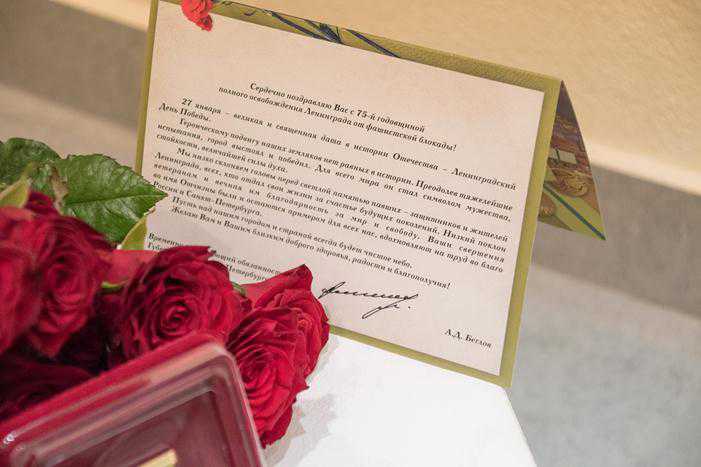 Сердечно поздравляю Вас с 75-й годовщиной
полного освобождения Ленинграда от фашистской блокады!
27 января – великая и священная дата в истории Отечества – Ленинградский
День Победы.
Героическому подвигу наших земляков нет равных в истории. Преодолев тяжелейшие
испытания, город выстоял и победил. Для всего мира он стал символом мужества,
стойкости, величайшей силы духа.
Мы низко склоняем головы перед светлой памятью павших – защитников и жителей
Ленинграда, всех, кто отдал свои жизни за счастье будущих поколений. Низкий поклон
ветеранам и вечная им благодарность за мир и свободу. Ваши свершения
во имя Отчизны были и остаются примером для всех нас, вдохновляют на труд во благо
России и Санкт-Петербурга.
Пусть над нашим городом и страной всегда будет чистое небо.
Желаю Вам и Вашим близким доброго здоровья, радости и благополучия!
Временно обязанности
Губе Петербург
А.Д. Беглов